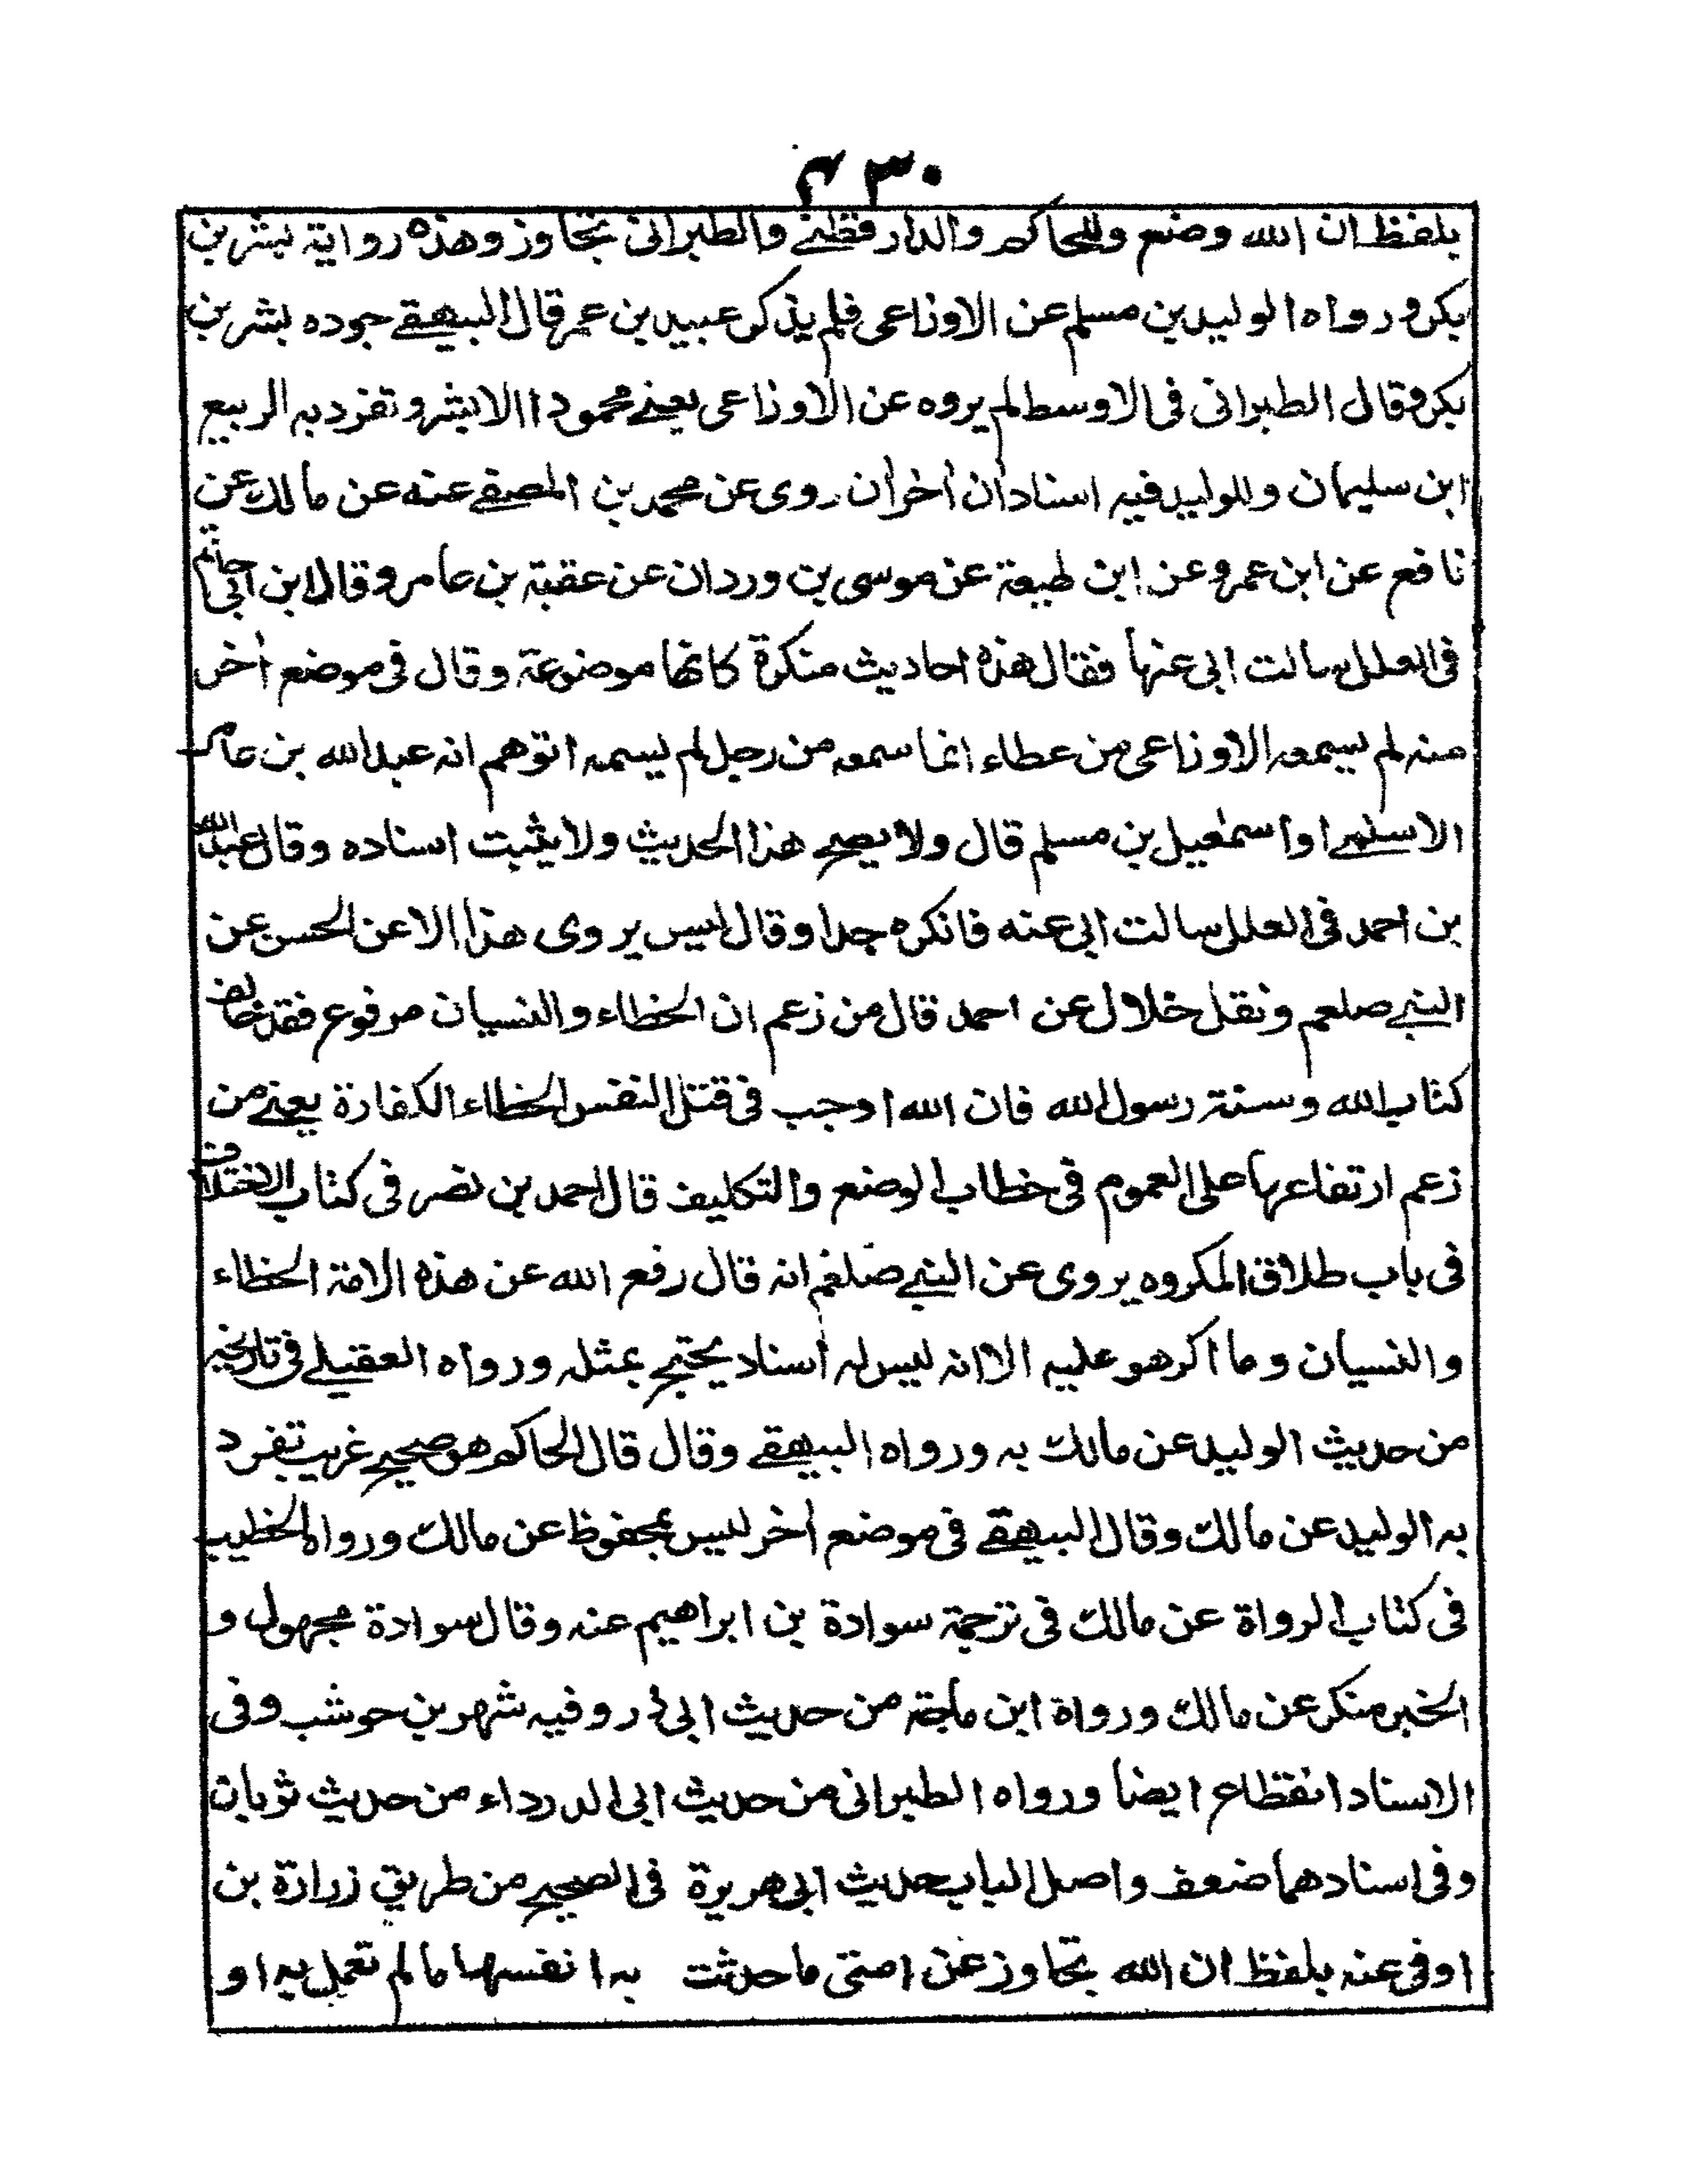 ۴۳۰
بلفظ ان الله وضع وللحاكم والدارقطني والطبرانى تجاوز وهذه رواية بشر بن
بكر ورواه الوليد بن مسلم عن الاوزاعى فلم يذكر عبيد بن عمر قال البيهقي جوده بشر بن
بكر وقال الطبرانى فى الاوسط لم يروه عن الاوزاعى يعني مجمودا الابشر و تفرد به الربيع
ابن سليمان وللوليد فيه اسنادان أخران روى عن محمد بن المصفي عنه عن مالك عن
نافع عن ابن عمر وعن ابن لهيعة عن موسى بن وردان عن عقبة بن عامر وقال ابن ابى حاتم
فى العلل سالت ابى عنها فقال هذه احاديث منكرة كانها موضوعة وقال فى موضع أخر
منه لم يسمعه الاوزاعى من عطاء انما سمعه من رجل لم يسمه اتوهم انه عبد الله بن عامر
الاسلمي او اسمعيل بن مسلم قال ولا يصح هذا الحديث ولا يثبت اسناده وقال عبد الله
بن احمد فى العلل سالت ابى عنه فانكره جدا وقال ليس يروى هذا الا عن الحسن عن
النبي صلعم ونقل خلال عن احمد قال من زعم ان الخطاء والنسيان مرفوع فقد خالف
كتاب الله وسنة رسول الله فان الله اوجب فى قتل النفس الخطاء الكفارة يعني من
زعم ارتفاعها على العموم فى خطاب الوضع والتكليف قال احمد بن نصر فى كتاب الاختلاف
فى باب طلاق المكروه يروى عن النبي صلعم انه قال رفع الله عن هذه الامة الخطاء
والنسيان وما اكرهو عليه الا انه ليس له اسناد يحتج بمثله ورواه العقيلي فى تاريخه
من حديث الوليد عن مالك به ورواه البيهقي وقال قال الحاكم هو صحيح غريب تفرد
به الوليد عن مالك وقال البيهقي فى موضع أخر ليس بمحفوظ عن مالك ورواه الخطيب
فى كتاب الرواة عن مالك فى ترجمة سوادة بن ابراهيم عنه وقال سوادة مجهول و
الخبر منكر عن مالك ورواة ابن ماجة من حديث ابى ذر وفيه شهر بن حوشب وفى
الاسناد انقطاع ايضا ورواه الطبرانى من حديث ابى الدرداء من حديث ثوبان
وفى اسنادهما ضعف واصل الباب حديث ابى هريرة فى الصحيح من طريق زرارة بن
اوفى عنه بلفظ ان الله تجاوز عن امتى ما حدثت به انفسها ما لم تعمل به او